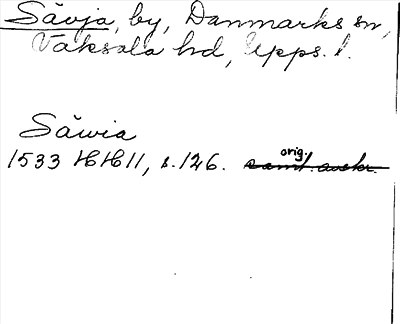 Sävja, by, Danmarks sn,
Vaksala hd, Upps. l.
Säwia
orig.
1533 HH11, s. 126. samt. avskr.